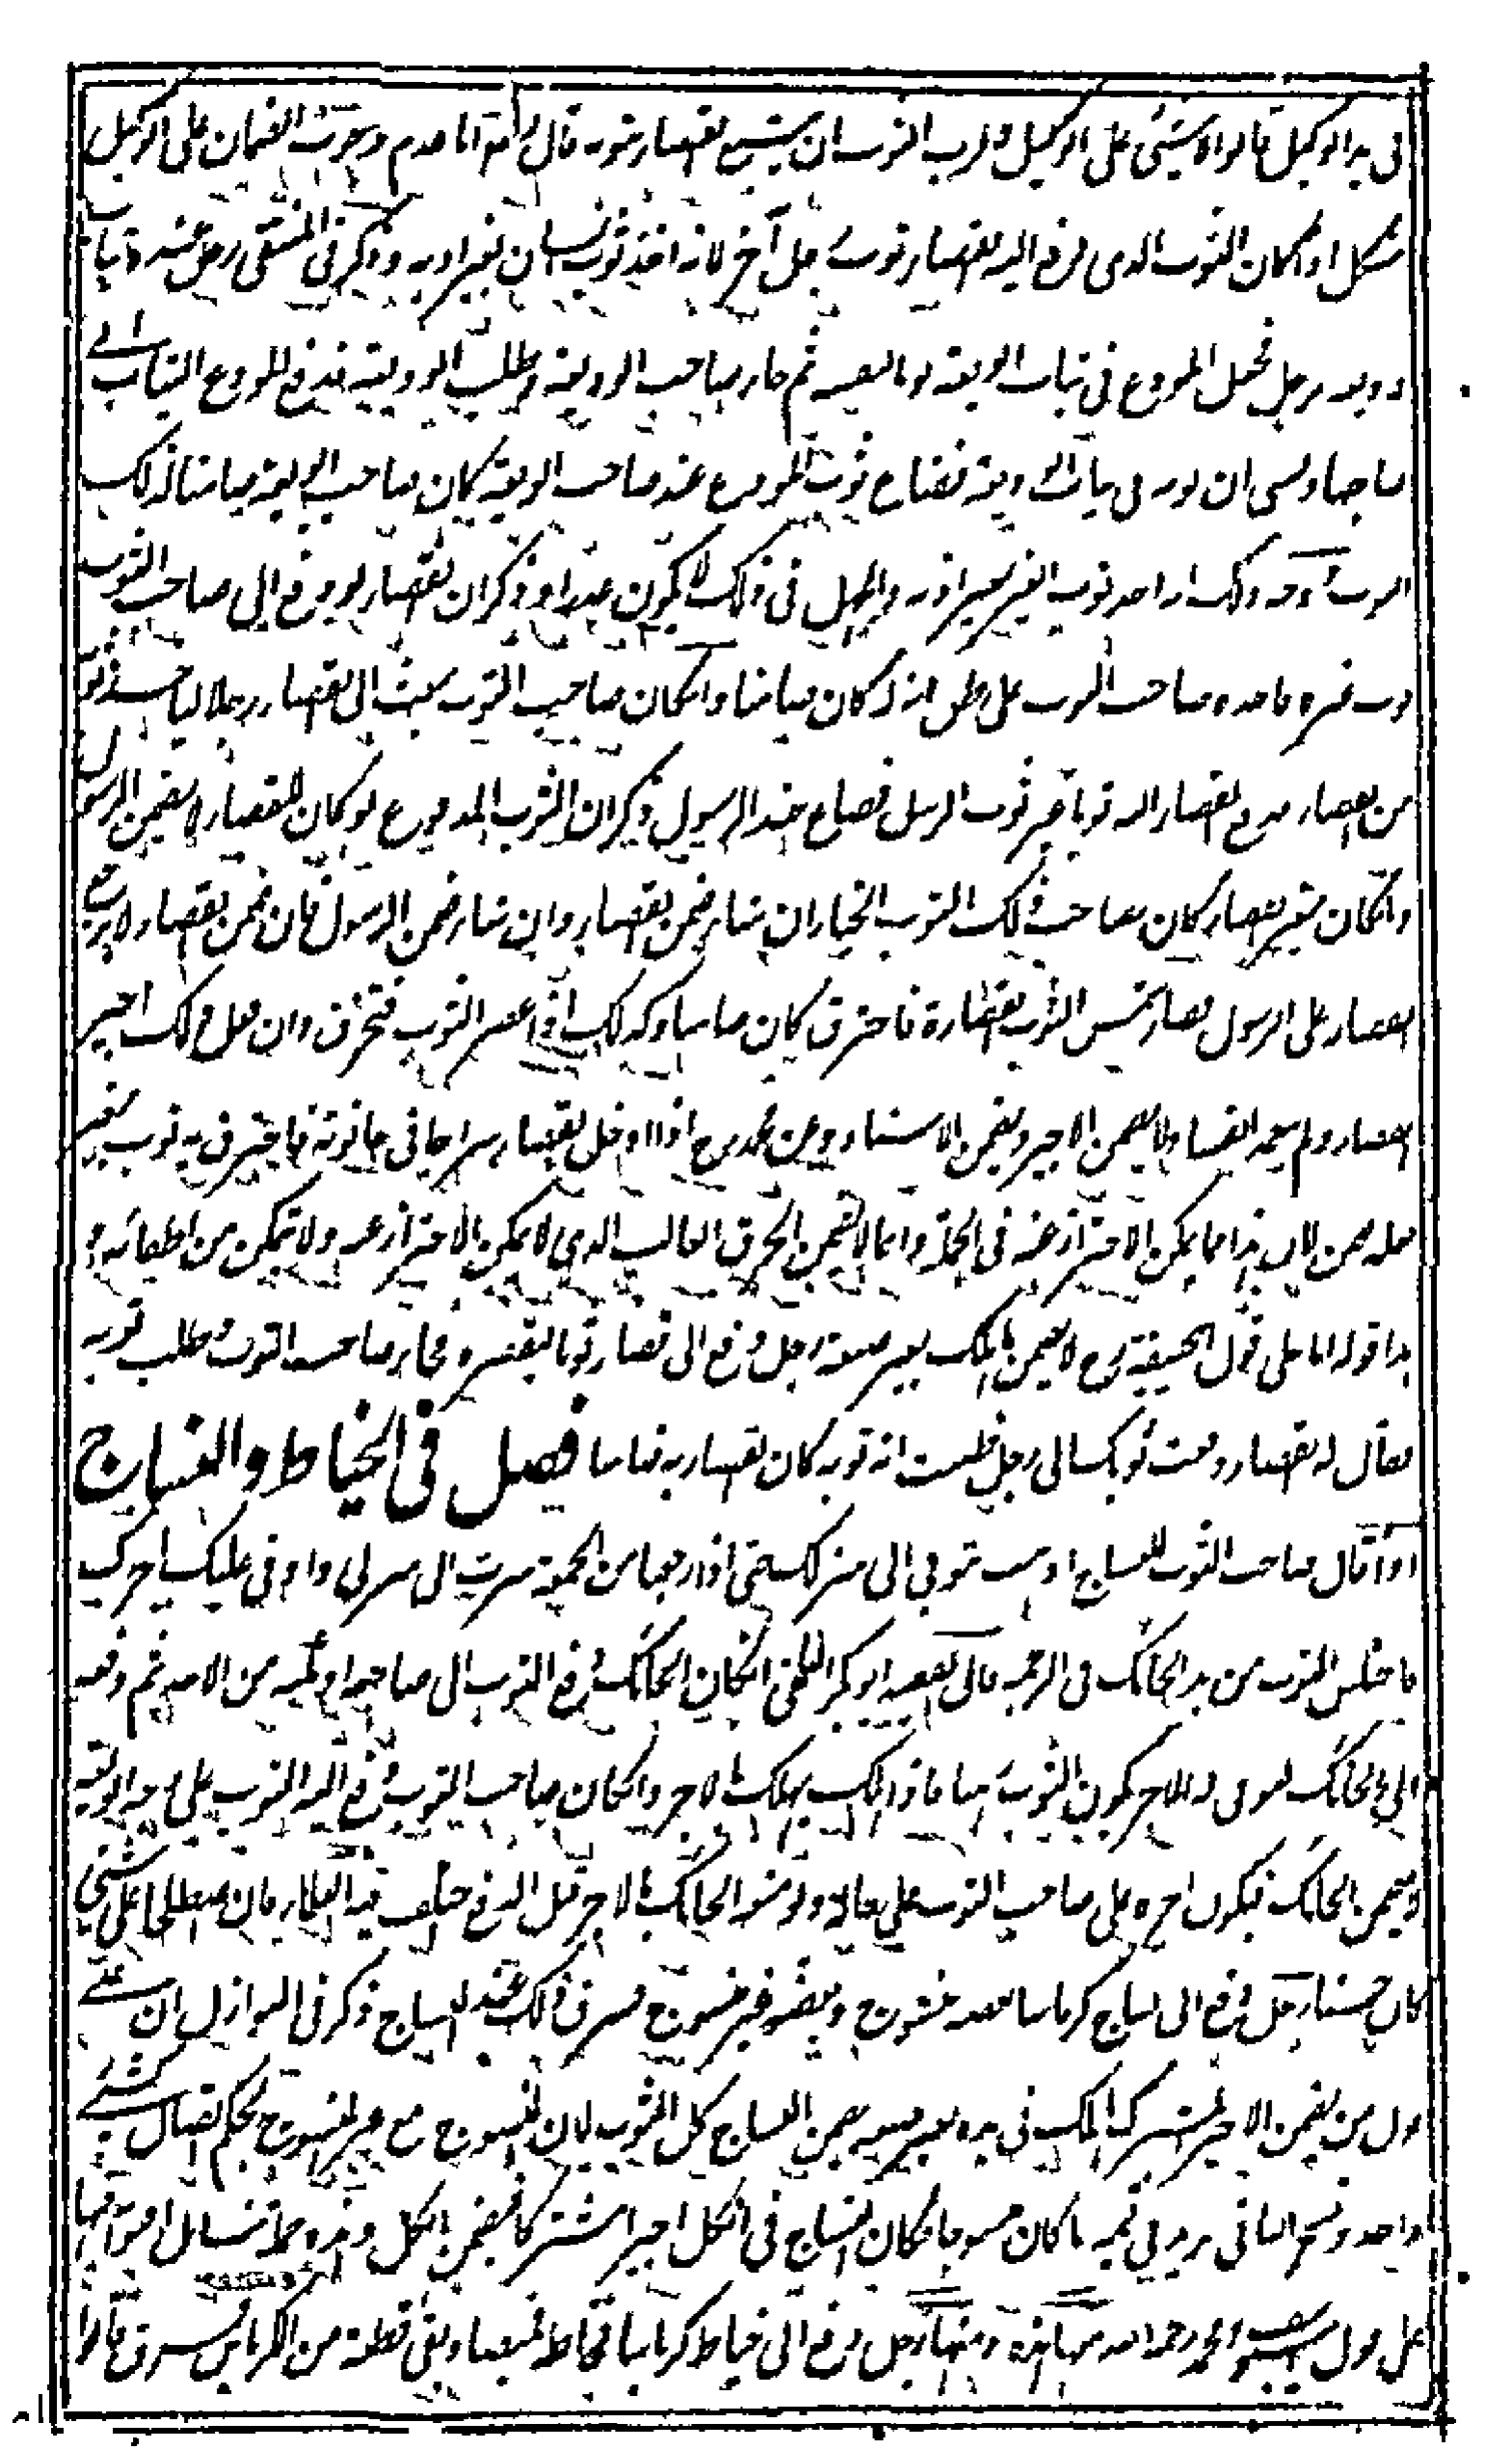 في يد الوكيل قالوا لا شيء على الوكيل ولرب الثوب ان يتبع القصار بثوبه قال وجوب الضمان على الوكيل
مشكل اذا كان الثوب الذي دفع اليه القصار ثوب رجل آخر لانه اخذ ثوب انسان بغير اذنه وذكر في المنتقى رجل عنده ثياب
وديعة لرجل فجعل المودع في ثياب الوديعة ثوبا لنفسه ثم جاء صاحب الوديعة وطلب الوديعة فدفع المودع الثياب الى
صاحبها ونسي ان ثوبه في ثياب الوديعة فضاع ثوب المودع عند صاحب الوديعة كان صاحب الوديعة ضامنا لذلك
الثوب لانه اخذ ثوب الغير بغير اذنه والجهل في ذلك لا يكون عذرا وذكر ان القصار لو دفع الى صاحب الثوب
ثوب غيره فاخذه صاحب الثوب على ظن انه له كان ضامنا وان كان صاحب الثوب بعث الى القصار رجلا لياخذ ثوبه
من القصار فدفع القصار اليه ثوبا غير ثوب المرسل فضاع عند الرسول ذكر ان الثوب المدفوع لو كان للقصار لا يضمن الرسول
وان كان لغير القصار كان لصاحب ذلك الثوب الخيار ان شاء ضمن القصار وان شاء ضمن الرسول فان ضمن القصار لا يرجع
القصار على الرسول قصار شمس الثوب للقصارة فاحترق كان ضامنا وكذلك اذا عصر الثوب فتخرق وان فعل ذلك اجير
القصار ولم يتعمد الفساد لا يضمن الاجير ويضمن الاستاد وعن محمد رح اذا ادخل القصار سراجا في حانوته فاحترق به ثوب بغير
فعله ضمن لان هذا مما يمكن الاحتراز عنه في الجملة وانما لا يضمن الحرق الغالب الذي لا يمكن الاحتراز عنه ولا يتمكن من اطفائه و
هذا قولهما اما على قول ابي حنيفة رح لا يضمن ما هلك بغير صنعه رجل دفع الى قصار ثوبا ليقصره فجاء صاحب الثوب وطلب ثوبه
فقال له القصار دفعت ثوبك الى رجل ظننت انه ثوبه كان القصار ضامنا فصل في الخياط والنساج
اذا قال صاحب الثوب للنساج اذهب بثوبي الى منزلك حتى اذا رجعنا من الجمعة سرت الى منزلي واوفي عليك اجرك
فاختلس الثوب من يد الحائك في الزحمة قال الفقيه ابو بكر البلخي ان كان الحائك دفع الثوب الى صاحبه ثم دفعه
الى الحائك ليوفي له الاجر يكون الثوب رهنا فاذا هلك يهلك بالاجر وان كان صاحب الثوب دفع اليه الثوب على وجه الوديعة
لا يضمن الحائك فيكون اجره على صاحب الثوب على حاله ولو منعه الحائك بالاجر قبل الدفع اختلف فيه العلماء فان اصطلحا على شيء
كان حسنا رجل دفع الى نساج كرباسا بعضه منسوج وبعضه غير منسوج فسرق ذلك عند النساج ذكر في النوازل ان على
قول من يضمن الاجير المشترك ما هلك في يده بغير صنعه يضمن النساج كل الثوب لان المنسوج مع غير المنسوج بحكم الاتصال كشيء
واحد ونسج الباقي يزيد في قيمة ما كان منسوجا فكان النساج في الكل اجيرا مشتركا فيضمن الكل وهذه
على قول ابي يوسف ومحمد رحمهما الله ومنها رجل دفع الى خياط كرباسا فخاطه قميصا وبقي قطعة من الكرباس فسرق قالوا